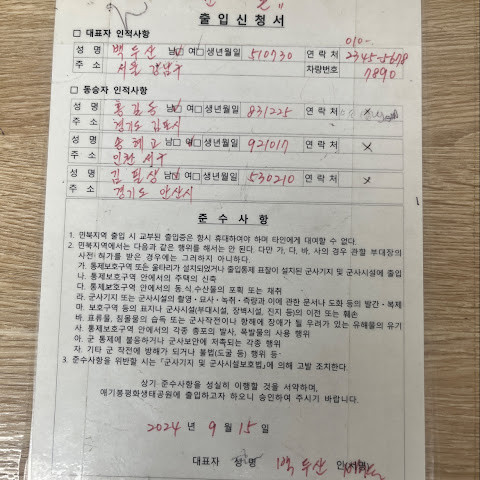 출입신청서
□ 대표자 인적사항
성 명 백두산 남□ 여□ 생년월일 510730 연 락 처 010-2345-5678
주 소 서울 강남구 차량번호 7890
□ 동승자 인적사항
성 명 홍길동 남□ 여□ 생년월일 831225 연 락 처 ×
주 소 경기도 김포시
성 명 송혜교 남□ 여□ 생년월일 921017 연 락 처 ×
주 소 인천 서구
성 명 김필상 남□ 여□ 생년월일 530210 연 락 처 ×
주 소 경기도 안산시
준 수 사 항
1. 민북지역 출입 시 교부된 출입증은 항시 휴대하여야 하며 타인에게 대여할 수 없다.
2. 민북지역에서는 다음과 같은 행위를 해서는 안 된다. 다만 가, 다, 바, 사의 경우 관할 부대장의
사전/허가를 받은 경우에는 그러하지 아니하다.
가. 통제보호구역 또는 울타리가 설치되었거나 출입통제 표찰이 설치된 군사기지 및 군사시설에 출입
나. 통제보호구역 안에서의 주택의 신축
다. 통제보호구역 안에서의 동.식.수산물의 포획 또는 채취
라. 군사기지 또는 군사시설의 촬영·묘사·녹취·측량과 이에 관한 문서나 도화 등의 발간·복제
마. 보호구역 등의 표지나 군사시설(부대시설, 장벽시설, 진지 등)의 이전 또는 훼손
바. 표류물, 침몰물의 습득 또는 군사작전이나 항해에 장애가 될 우려가 있는 유해물의 유기
사. 통제보호구역 안에서의 각종 총포의 발사, 폭발물의 사용 행위
아. 군 통제에 불응하거나 군사보안에 저촉되는 각종 행위
자. 기타 군 작전에 방해가 되거나 불법(도굴 등) 행위 등
3. 준수사항을 위반할 시는 「군사기지 및 군사시설보호법」에 의해 고발 조치한다.
상기 준수사항을 성실히 이행할 것을 서약하며,
애기봉평화생태공원에 출입하고자 하오니 승인하여 주시기 바랍니다.
2024 년 9 월 15 일
대표자 성 명 백두산 인(서명)